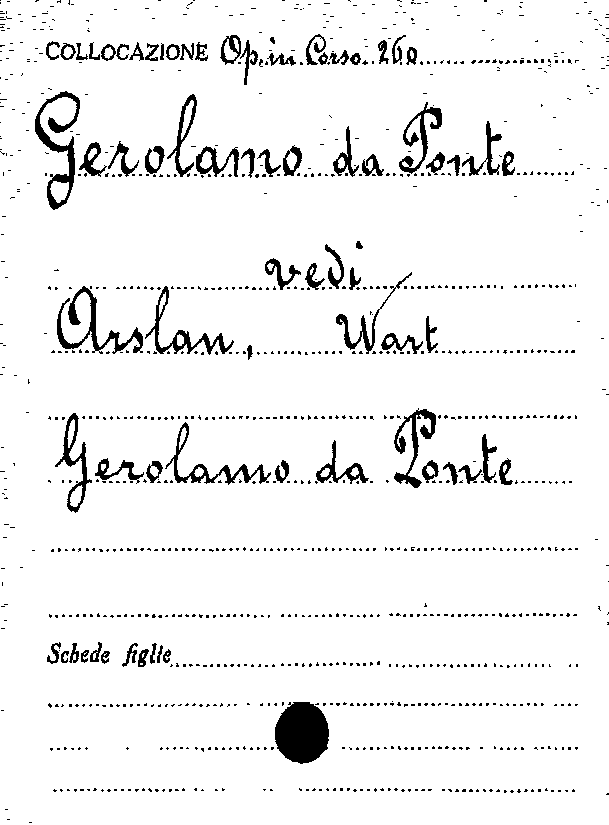 COLLOCAZIONE Op. in Corso. 260
Gerolamo da Ponte
vedi
Arslan, Wart
Gerolamo da Ponte
Schede figlie